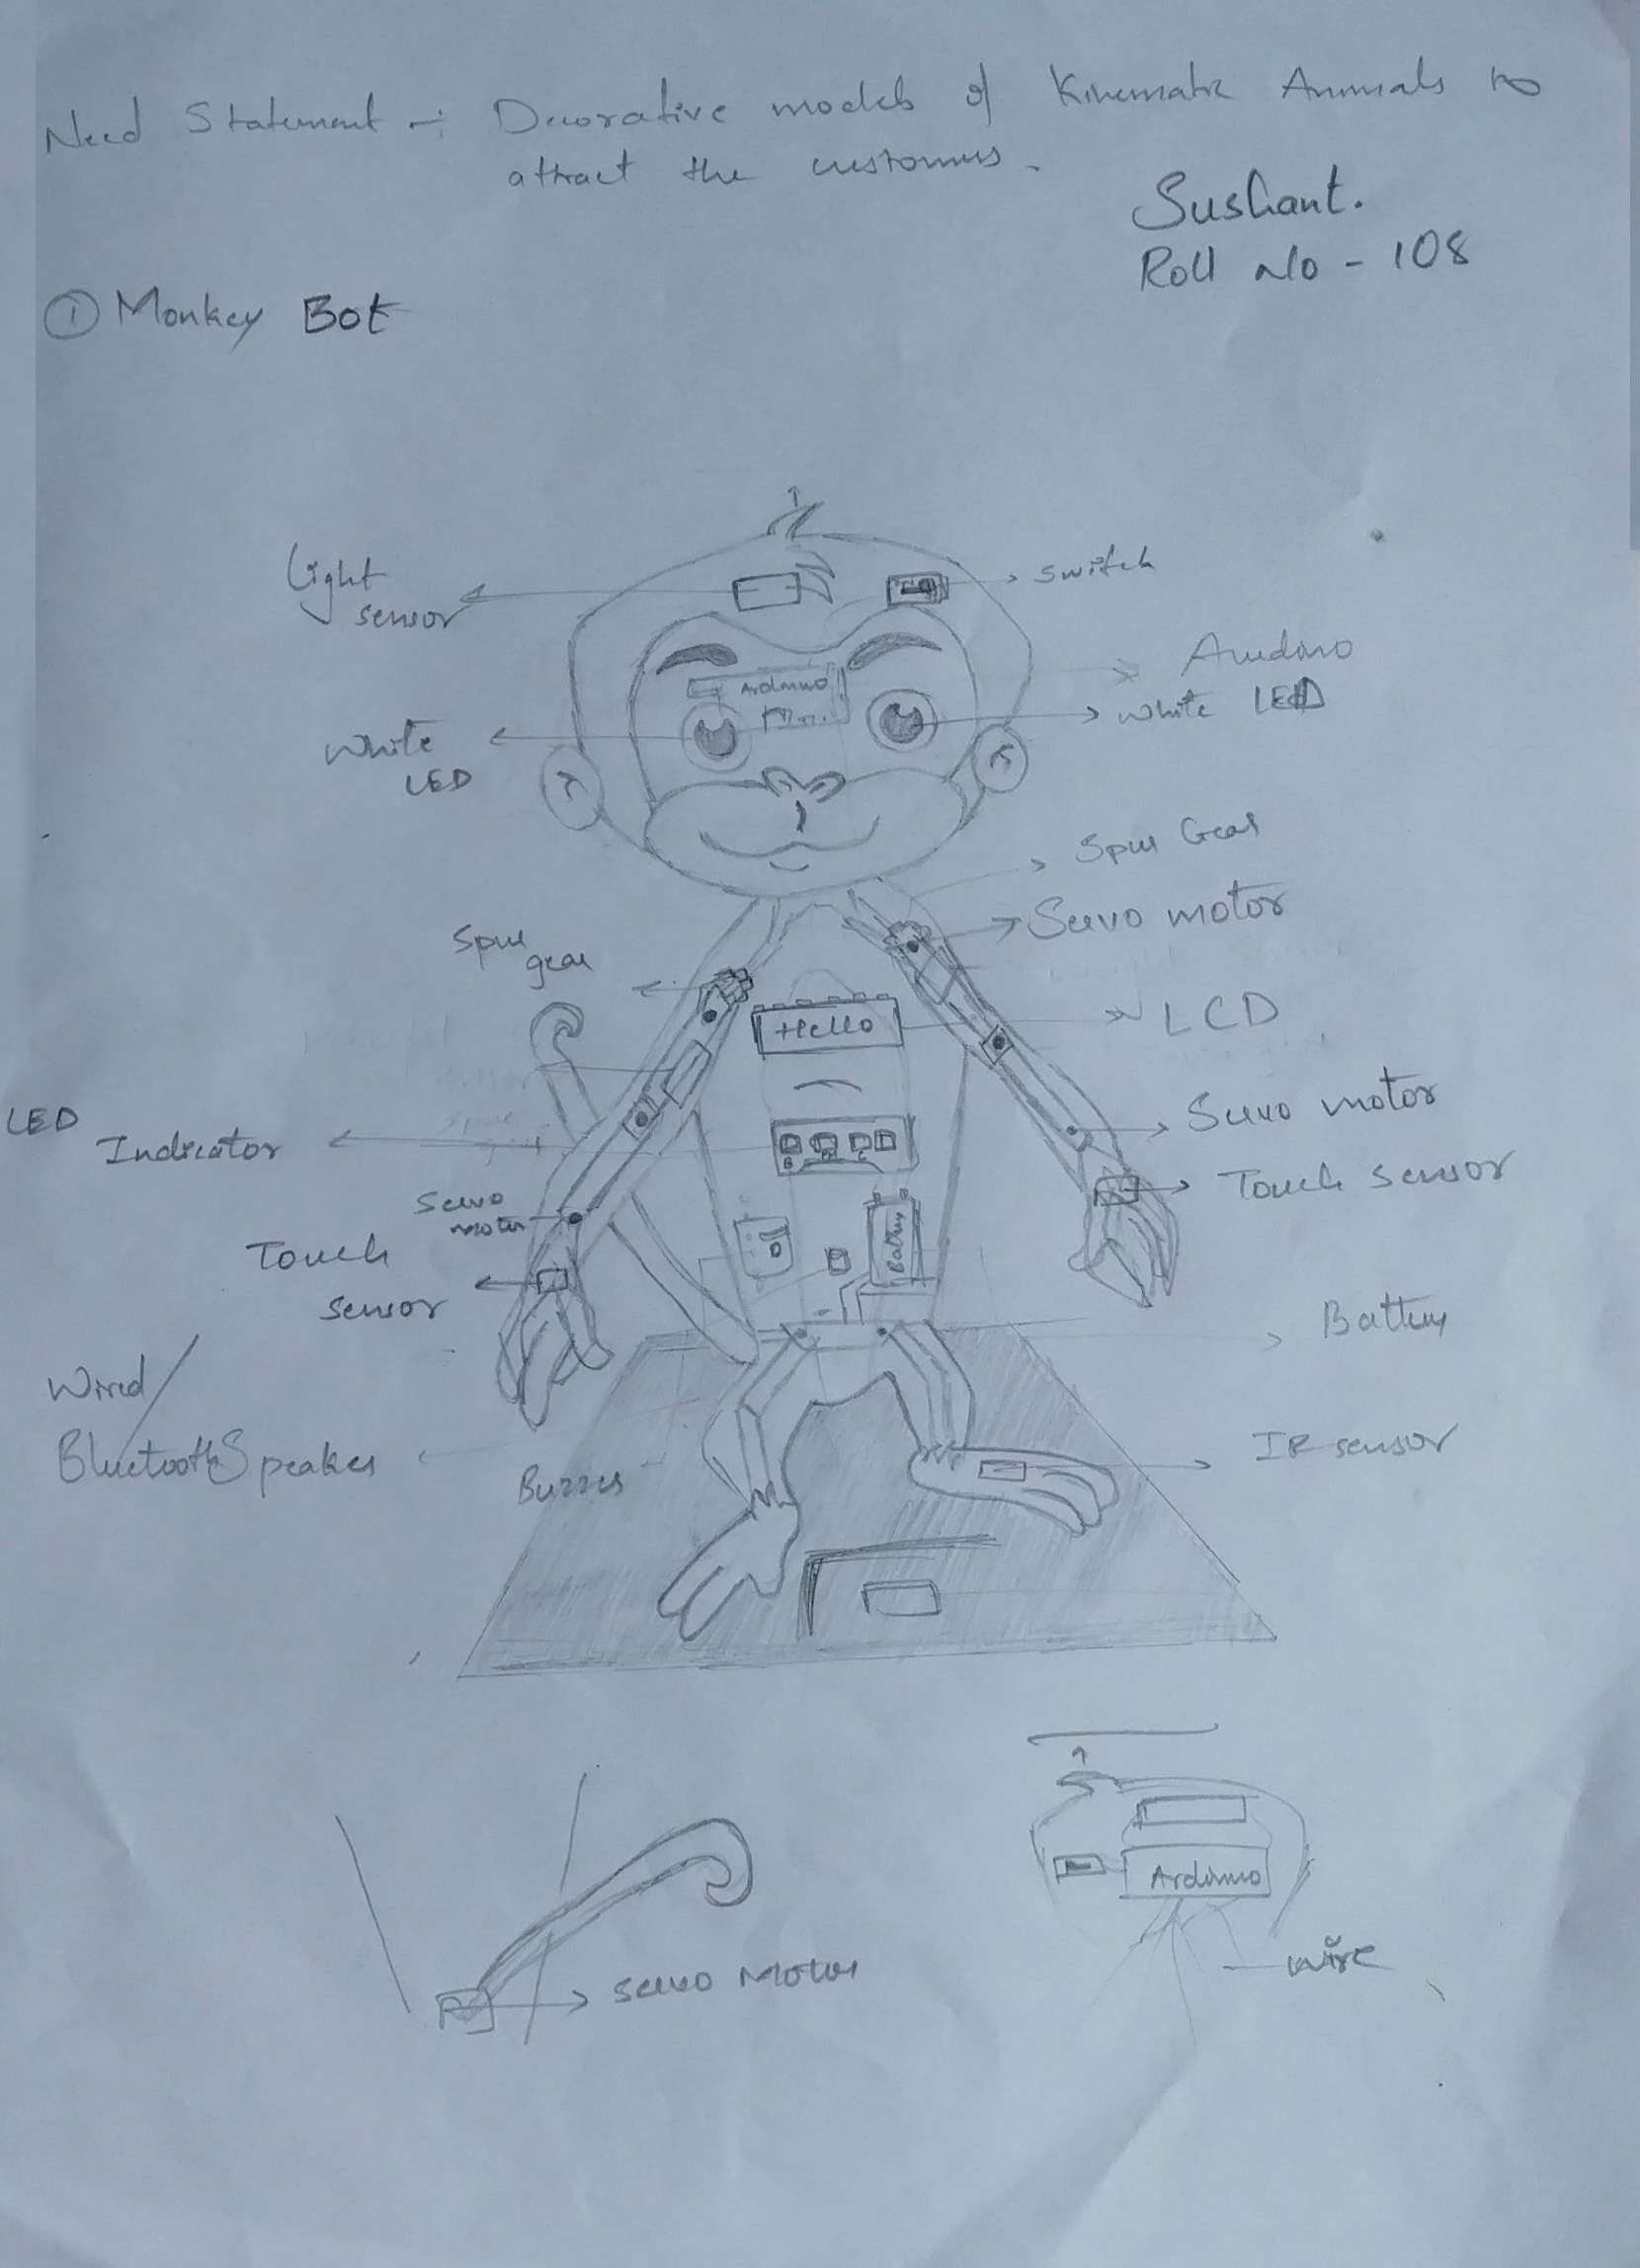 Need Statement :- Decorative models of Kinematic Animals to
attract the customers.
Sushant.
Roll No - 108
① Monkey Bot
Light
sensor
switch
Arduino
Arduino
White LED
White
LED
Spur Gear
Servo motor
Spur
gear
Hello
LCD
LED
Indicator
Servo motor
Touch sensor
Servo
motor
Touch
sensor
Battery
Battery
Wired/
Bluetooth Speaker
Buzzer
IR sensor
Arduino
wire
servo Motor